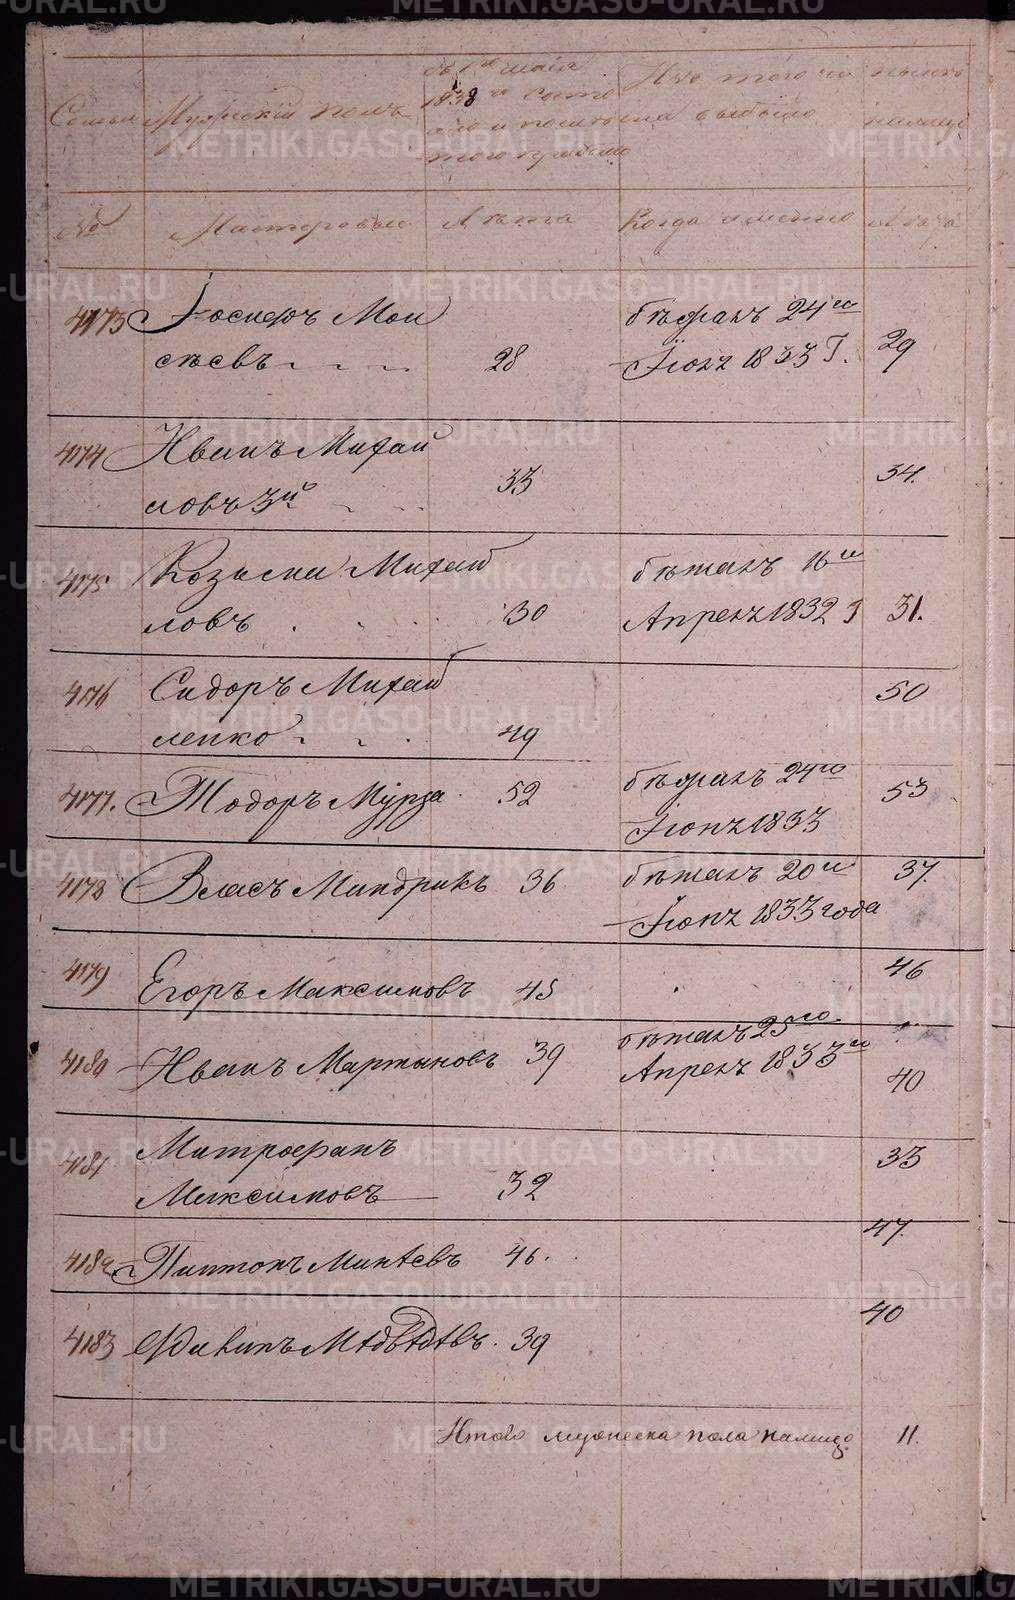 Семьи
Мужескій полъ
съ 1го маія
1833 го состо
яло и после
того прибыло
Изъ того числа выбыло
ныне на лицо
№
Мастеровые
Лѣта
Когда именно
Лѣта
4173 Іосифъ Мои
сѣевъ 28
бѣжалъ 24го
Іюля 1833 Г. 29
4174 Иванъ Михай
ловъ 3й 33 34.
4175 Козьма Михай
ловъ 30
бѣжалъ 16го
Апреля 1832 г 31.
4176 Сидоръ Михай
ленко 49 50
4177. Тодоръ Мурза 52
бѣжалъ 24го
Іюня 1833 53
4178 Власъ Миндрикъ 36
бѣжалъ 20го
Іюня 1833 года 37.
4179 Егоръ Максимовъ 45 46
4180 Иванъ Мартыновъ 39
бѣжалъ 25го.
Апреля 1833го 40
4181 Митрофанъ
Максимовъ 32 33
4182 Антонъ Минѣевъ 46. 47.
4183 Филипъ Медвѣдевъ. 39 40
Итого мужеска пола налицо. 11.
METRIKI.GASO-URAL.RU